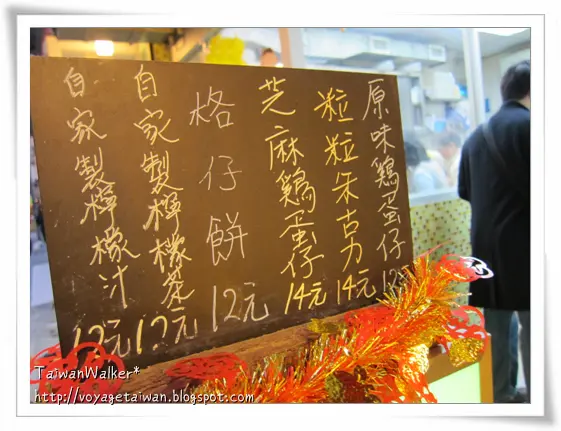 原味鷄蛋仔12元
粒粒朱古力14元
芝麻鷄蛋仔14元
格仔餅12元
自家製檸檬茶12元
自家製檸檬汁12元
TaiwanWalker*
http://voyagetaiwan.blogspot.com